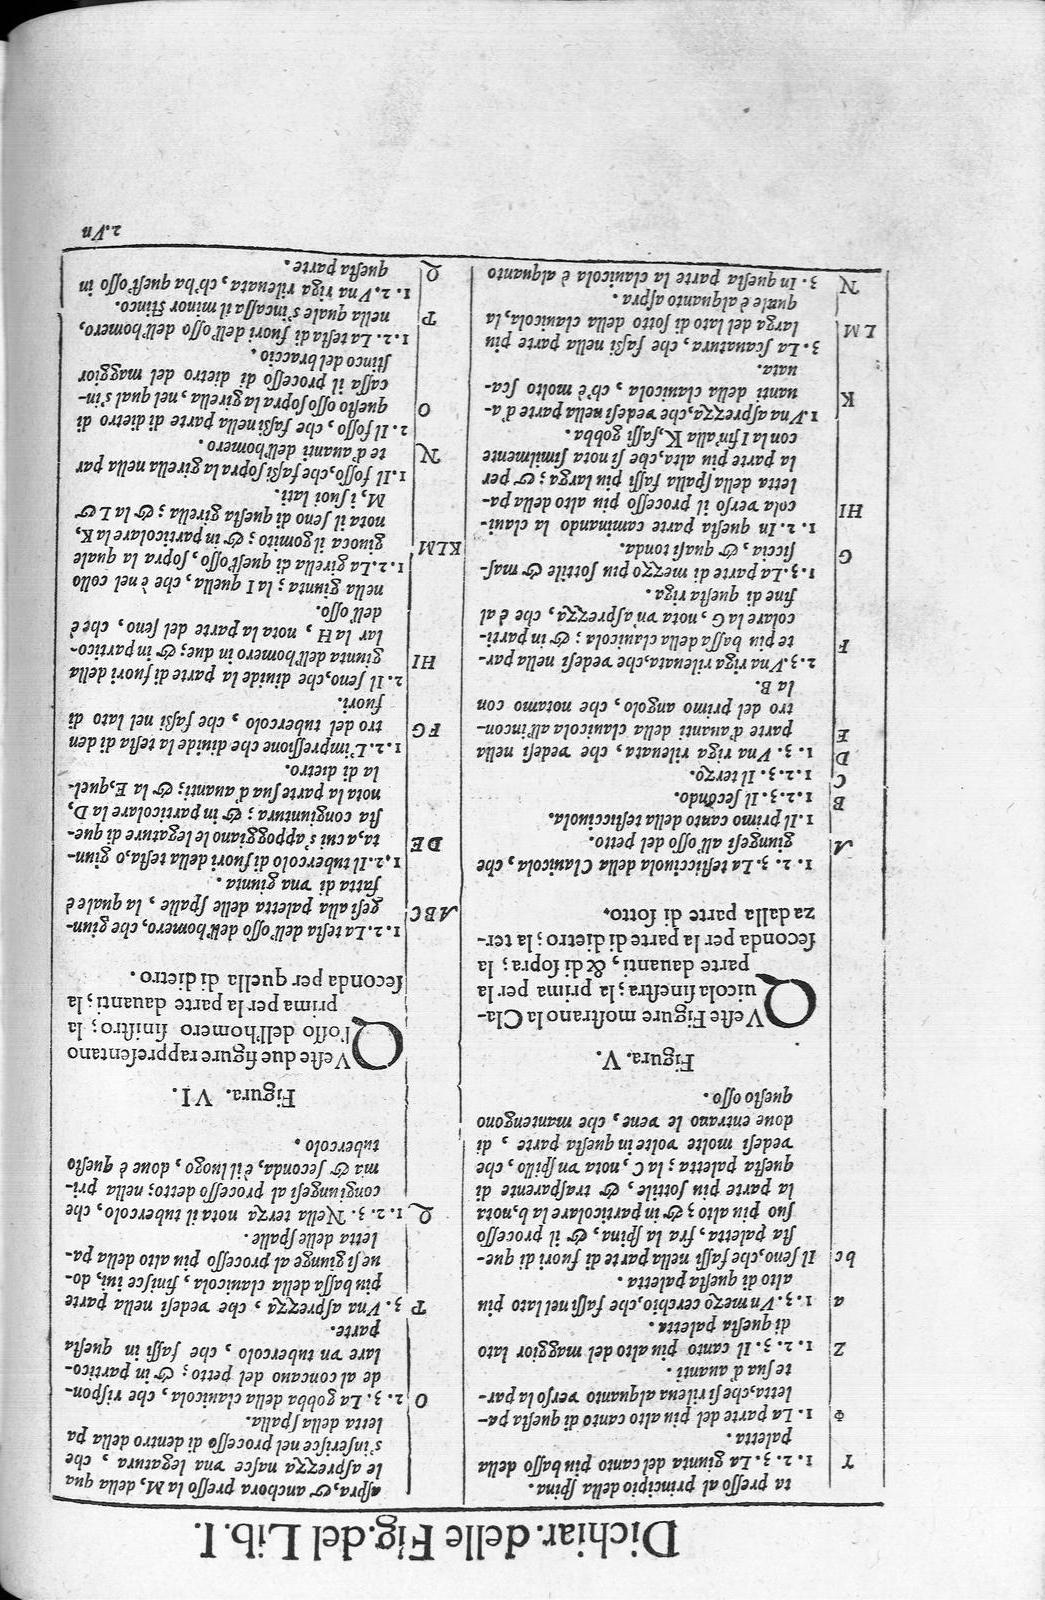 Dichiar. delle Fig. del Lib. I.
ta preſſo al principio della ſpina.
Y 1. 2. 3. La giunta del canto piu baſſo della
paletta.
Φ 1. La parte del piu alto canto di queſta pa-
letta, che ſi rileua alquanto verſo la par-
te ſua d'auanti.
Z 1. 2. 3. Il canto piu alto del maggior lato
di queſta paletta.
a 1. 3. Vn mezo cerchio, che faſſi nel lato piu
alto di queſta paletta.
bc Il ſeno, che faſſi nella parte di fuori di que-
ſta paletta, fra la ſpina, & il proceſſo
ſuo piu alto; & in particolare la b, nota
la parte piu ſottile, & traſparente di
queſta paletta; la C, nota vn ſpillo, che
vedeſi molte volte in queſta parte, di
doue entrano le vene, che mantengono
queſto oſſo.
Figura. V.
QVeſte Figure moſtrano la Cla-
uicola ſineſtra; la prima per la
parte dauanti, & di ſopra; la
ſeconda per la parte di dietro; la ter-
za dalla parte di ſotto.
A 1. 2. 3. La teſticciuola della Clauicola, che
giungeſi all'oſſo del petto.
1. Il primo canto della teſticciuola.
B 1. 2. 3. Il ſecōdo.
C 1. 2. 3. Il terzo.
D 1. 3. Vna riga rileuata, che vedeſi nella
E parte d'auanti della clauicola all'incon-
tro del primo angolo, che notamo con
la B.
F 2. 3. Vna riga rileuata, che vedeſi nella par-
te piu baſſa della clauicola; & in parti-
colare la G, nota vn'aſprezza, che è al
fine di queſta riga.
G 1. 3. La parte di mezzo piu ſottile & maſ-
ſiccia, & quaſi tonda.
HI 1. 2. In queſta parte caminando la claui-
cola verſo il proceſſo piu alto della pa-
letta della ſpalla faſſi piu larga; & per
la parte piu alta, che ſi nota ſimilmente
con la I fin'alla K, faſſi gobba.
K 1. Vna aſprezza, che vedeſi nella parte d'a-
uanti della clauicola, ch'è molto ſca-
nata.
LM 3. La ſcauatura, che faſſi nella parte piu
larga del lato di ſotto della clauicola, la
quale è alquanto aſpra.
N 3. In queſta parte la clauicola è alquanto
aſpra, & anchora preſſo la M, della qua
le aſprezza naſce vna legatura, che
s'inferiſce nel proceſſo di dentro della pa
letta della ſpalla.
O 2. 3. La gobba della clauicola, che riſpon-
de al concauo del petto; & in partico-
lare vn tubercolo, che faſſi in queſta
parte.
P 3. Vna aſprezza, che vedeſi nella parte
piu baſſa della clauicola, finiſce iui, do-
ue ſi giunge al proceſſo piu alto della pa-
letta delle ſpalle.
Q 1. 2. 3. Nella terza nota il tubercolo, che
congiungeſi al proceſſo detto; nella pri-
ma & ſeconda, è il luogo, doue è queſto
tubercolo.
Figura. VI.
QVeſte due figure rappreſentano
l'oſſo dell'homero ſiniſtro; la
prima per la parte dauanti; la
ſeconda per quella di dietro.
ABC 1. 2. La teſta dell'oſſo dell'homero, che giun-
geſi alla paletta delle ſpalle, la quale è
fatta di vna giunta.
DE 1. 2. Il tubercolo di fuori della teſta, o giun-
ta, a cui s'appoggiano le legature di que-
ſta congiuntura; & in particolare la D,
nota la parte ſua d'auanti; & la E, quel-
la di dietro.
FG 1. 2. L'impreſſione che diuide la teſta di den
tro del tubercolo, che faſſi nel lato di
fuori.
HI 2. Il ſeno, che diuide la parte di fuori della
giunta dell'homero in due; & in partico-
lar la H, nota la parte del ſeno, che è
dell'oſſo.
nella giunta; la I quella, che è nel collo
KLM 1. 2. La girella di queſt'oſſo, ſopra la quale
giuoca il gomito; & in particolare la K,
nota il ſeno di queſta girella; & la L &
M, i ſuoi lati.
N 1. Il foſſo, che faſſi ſopra la girella nella par
te d'auanti dell'homero.
O 2. Il foſſo, che faſſi nella parte di dietro di
queſto oſſo ſopra la girella, nel qual s'in-
caſſa il proceſſo di dietro del maggior
ſtinco del braccio.
P 1. 2. La teſta di fuori dell'oſſo dell'homero,
nella quale s'incaſſa il minor ſtinco.
Q 1. 2. Vna riga rileuata, ch'ha queſt'oſſo in
queſta parte.
2. Vn